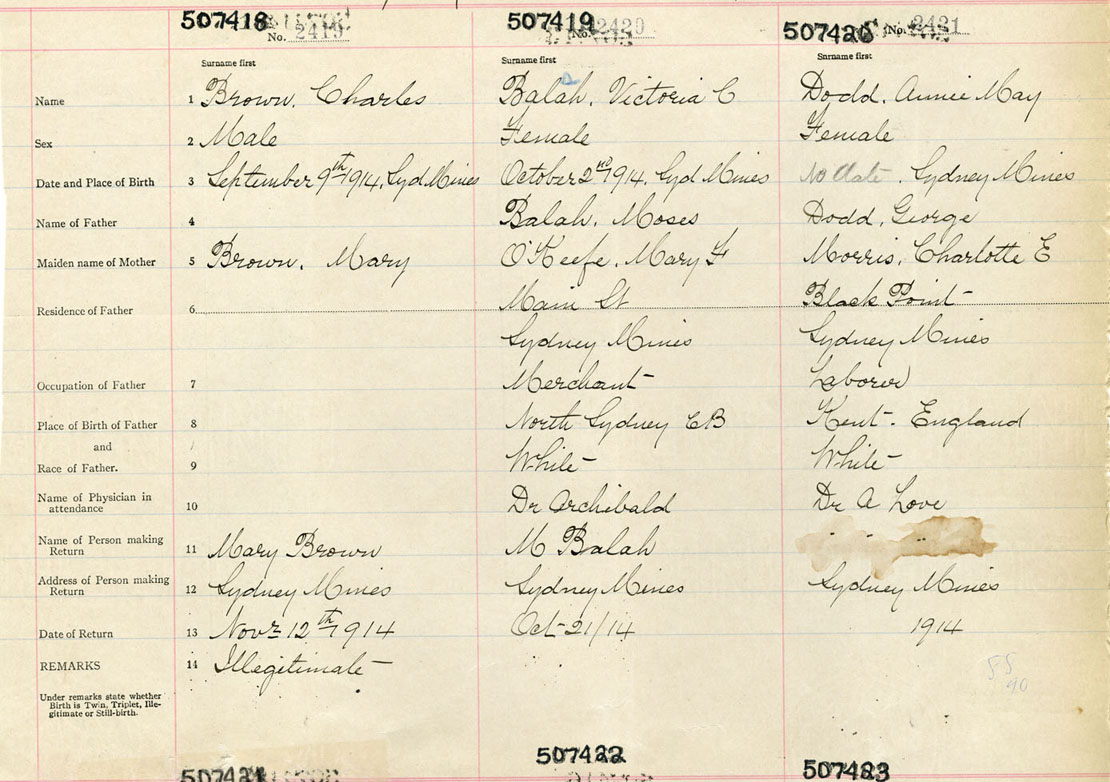 507418 507419 507420
No. 2419 No. 2420 No. 2421
Surname first Surname first Surname first
Name 1 Brown, Charles Balah, Victoria C Dodd, Annie May
Sex 2 Male Female Female
Date and Place of Birth 3 September 9th 1914, Syd Mines October 2nd 1914, Syd Mines No date, Sydney Mines
Name of Father 4 Balah, Moses Dodd, George
Maiden name of Mother 5 Brown, Mary O'Keefe, Mary F Morris, Charlotte E
Residence of Father 6 Main St Black Point
Sydney Mines Sydney Mines
Occupation of Father 7 Merchant Laborer
Place of Birth of Father 8 North Sydney CB Kent. England
and
Race of Father. 9 White White
Name of Physician in
attendance 10 Dr Archibald Dr A Love
Name of Person making
Return 11 Mary Brown M Balah
Address of Person making
Return 12 Sydney Mines Sydney Mines Sydney Mines
Date of Return 13 Novr 12th 1914 Oct 21/14 1914
REMARKS 14 Illegitimate
Under remarks state whether
Birth is Twin, Triplet, Ille-
gitimate or Still-birth.
507421 507422 507423